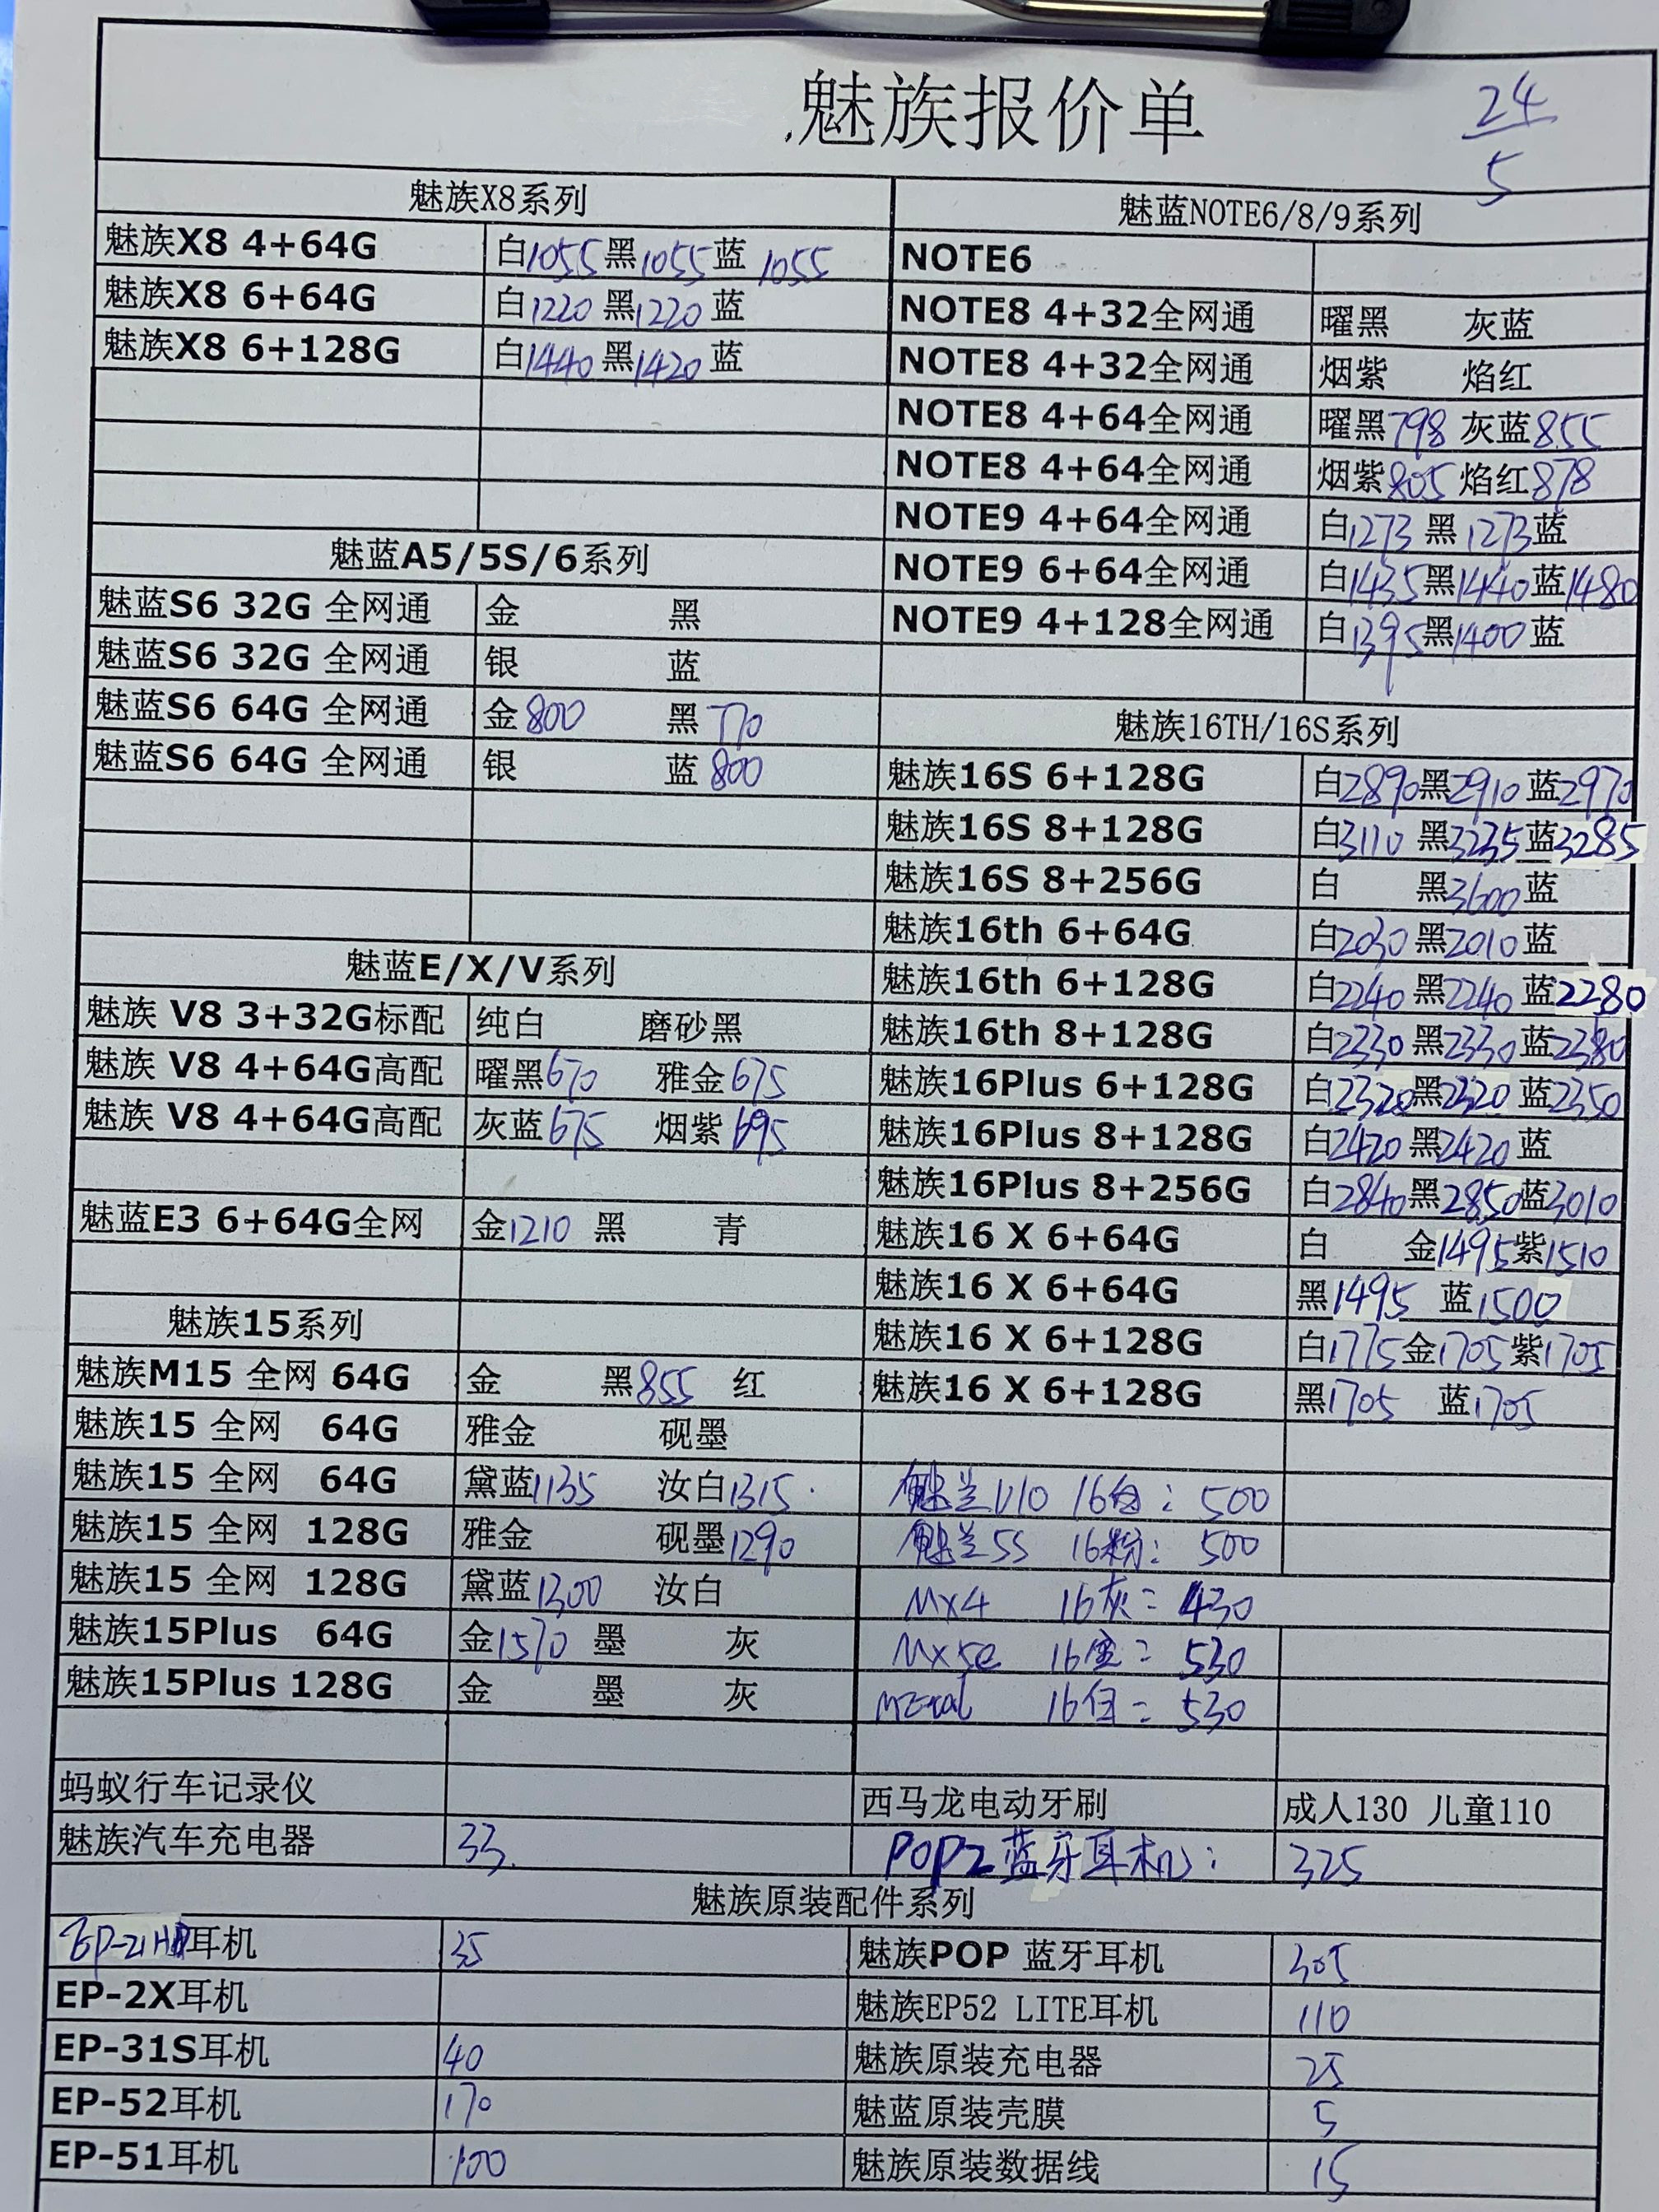 魅族报价单
24/5
魅族X8系列
魅族X8 4+64G 白1055 黑1055 蓝 1055
魅族X8 6+64G 白1220 黑1220 蓝
魅族X8 6+128G 白1440 黑1420 蓝
魅蓝A5/5S/6系列
魅蓝S6 32G 全网通 金 黑
魅蓝S6 32G 全网通 银 蓝
魅蓝S6 64G 全网通 金800 黑770
魅蓝S6 64G 全网通 银 蓝800
魅蓝E/X/V系列
魅族 V8 3+32G标配 纯白 磨砂黑
魅族 V8 4+64G高配 曜黑670 雅金675
魅族 V8 4+64G高配 灰蓝675 烟紫695
魅蓝E3 6+64G全网 金1210 黑 青
魅族15系列
魅族M15 全网 64G 金 黑855 红
魅族15 全网 64G 雅金 砚墨
魅族15 全网 64G 黛蓝1135 汝白1315
魅族15 全网 128G 雅金 砚墨1290
魅族15 全网 128G 黛蓝1300 汝白
魅族15Plus 64G 金1570 墨 灰
魅族15Plus 128G 金 墨 灰
蚂蚁行车记录仪
魅族汽车充电器 33
魅蓝NOTE6/8/9系列
NOTE6
NOTE8 4+32全网通 曜黑 灰蓝
NOTE8 4+32全网通 烟紫 焰红
NOTE8 4+64全网通 曜黑798 灰蓝855
NOTE8 4+64全网通 烟紫805 焰红878
NOTE9 4+64全网通 白1273 黑1273 蓝
NOTE9 6+64全网通 白1435 黑1440 蓝1480
NOTE9 4+128全网通 白1395 黑1400 蓝
魅族16TH/16S系列
魅族16S 6+128G 白2890 黑2910 蓝2970
魅族16S 8+128G 白3110 黑3235 蓝3285
魅族16S 8+256G 白 黑3600 蓝
魅族16th 6+64G 白2030 黑2010 蓝
魅族16th 6+128G 白2240 黑2240 蓝2280
魅族16th 8+128G 白2330 黑2330 蓝2380
魅族16Plus 6+128G 白2320 黑2320 蓝2350
魅族16Plus 8+128G 白2420 黑2420 蓝
魅族16Plus 8+256G 白2840 黑2850 蓝3010
魅族16 X 6+64G 白 金1495 紫1510
魅族16 X 6+64G 黑1495 蓝1500
魅族16 X 6+128G 白1775 金1705 紫1705
魅族16 X 6+128G 黑1705 蓝1705
魅兰U10 16白: 500
魅兰5S 16粉: 500
MX4 16灰= 430
MX5e 16 = 530
metal 16白= 530
西马龙电动牙刷 成人130 儿童110
POP2蓝牙耳机: 325
魅族原装配件系列
耳机 35 魅族POP 蓝牙耳机 305
EP-2X耳机 魅族EP52 LITE耳机 110
EP-31S耳机 40 魅族原装充电器 25
EP-52耳机 170 魅蓝原装壳膜 5
EP-51耳机 100 魅族原装数据线 15